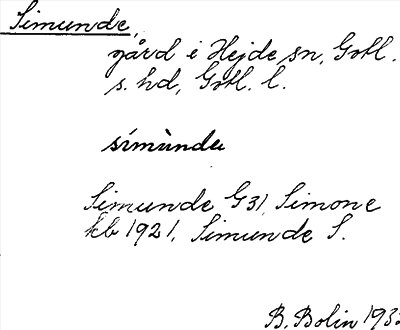 Simunde,
gård i Hejde sn, Gotl.
s. hd, Gotl. l.
simùnda
Simunde G31, Simone
kb 1921, Simunde S.
B. Bolin